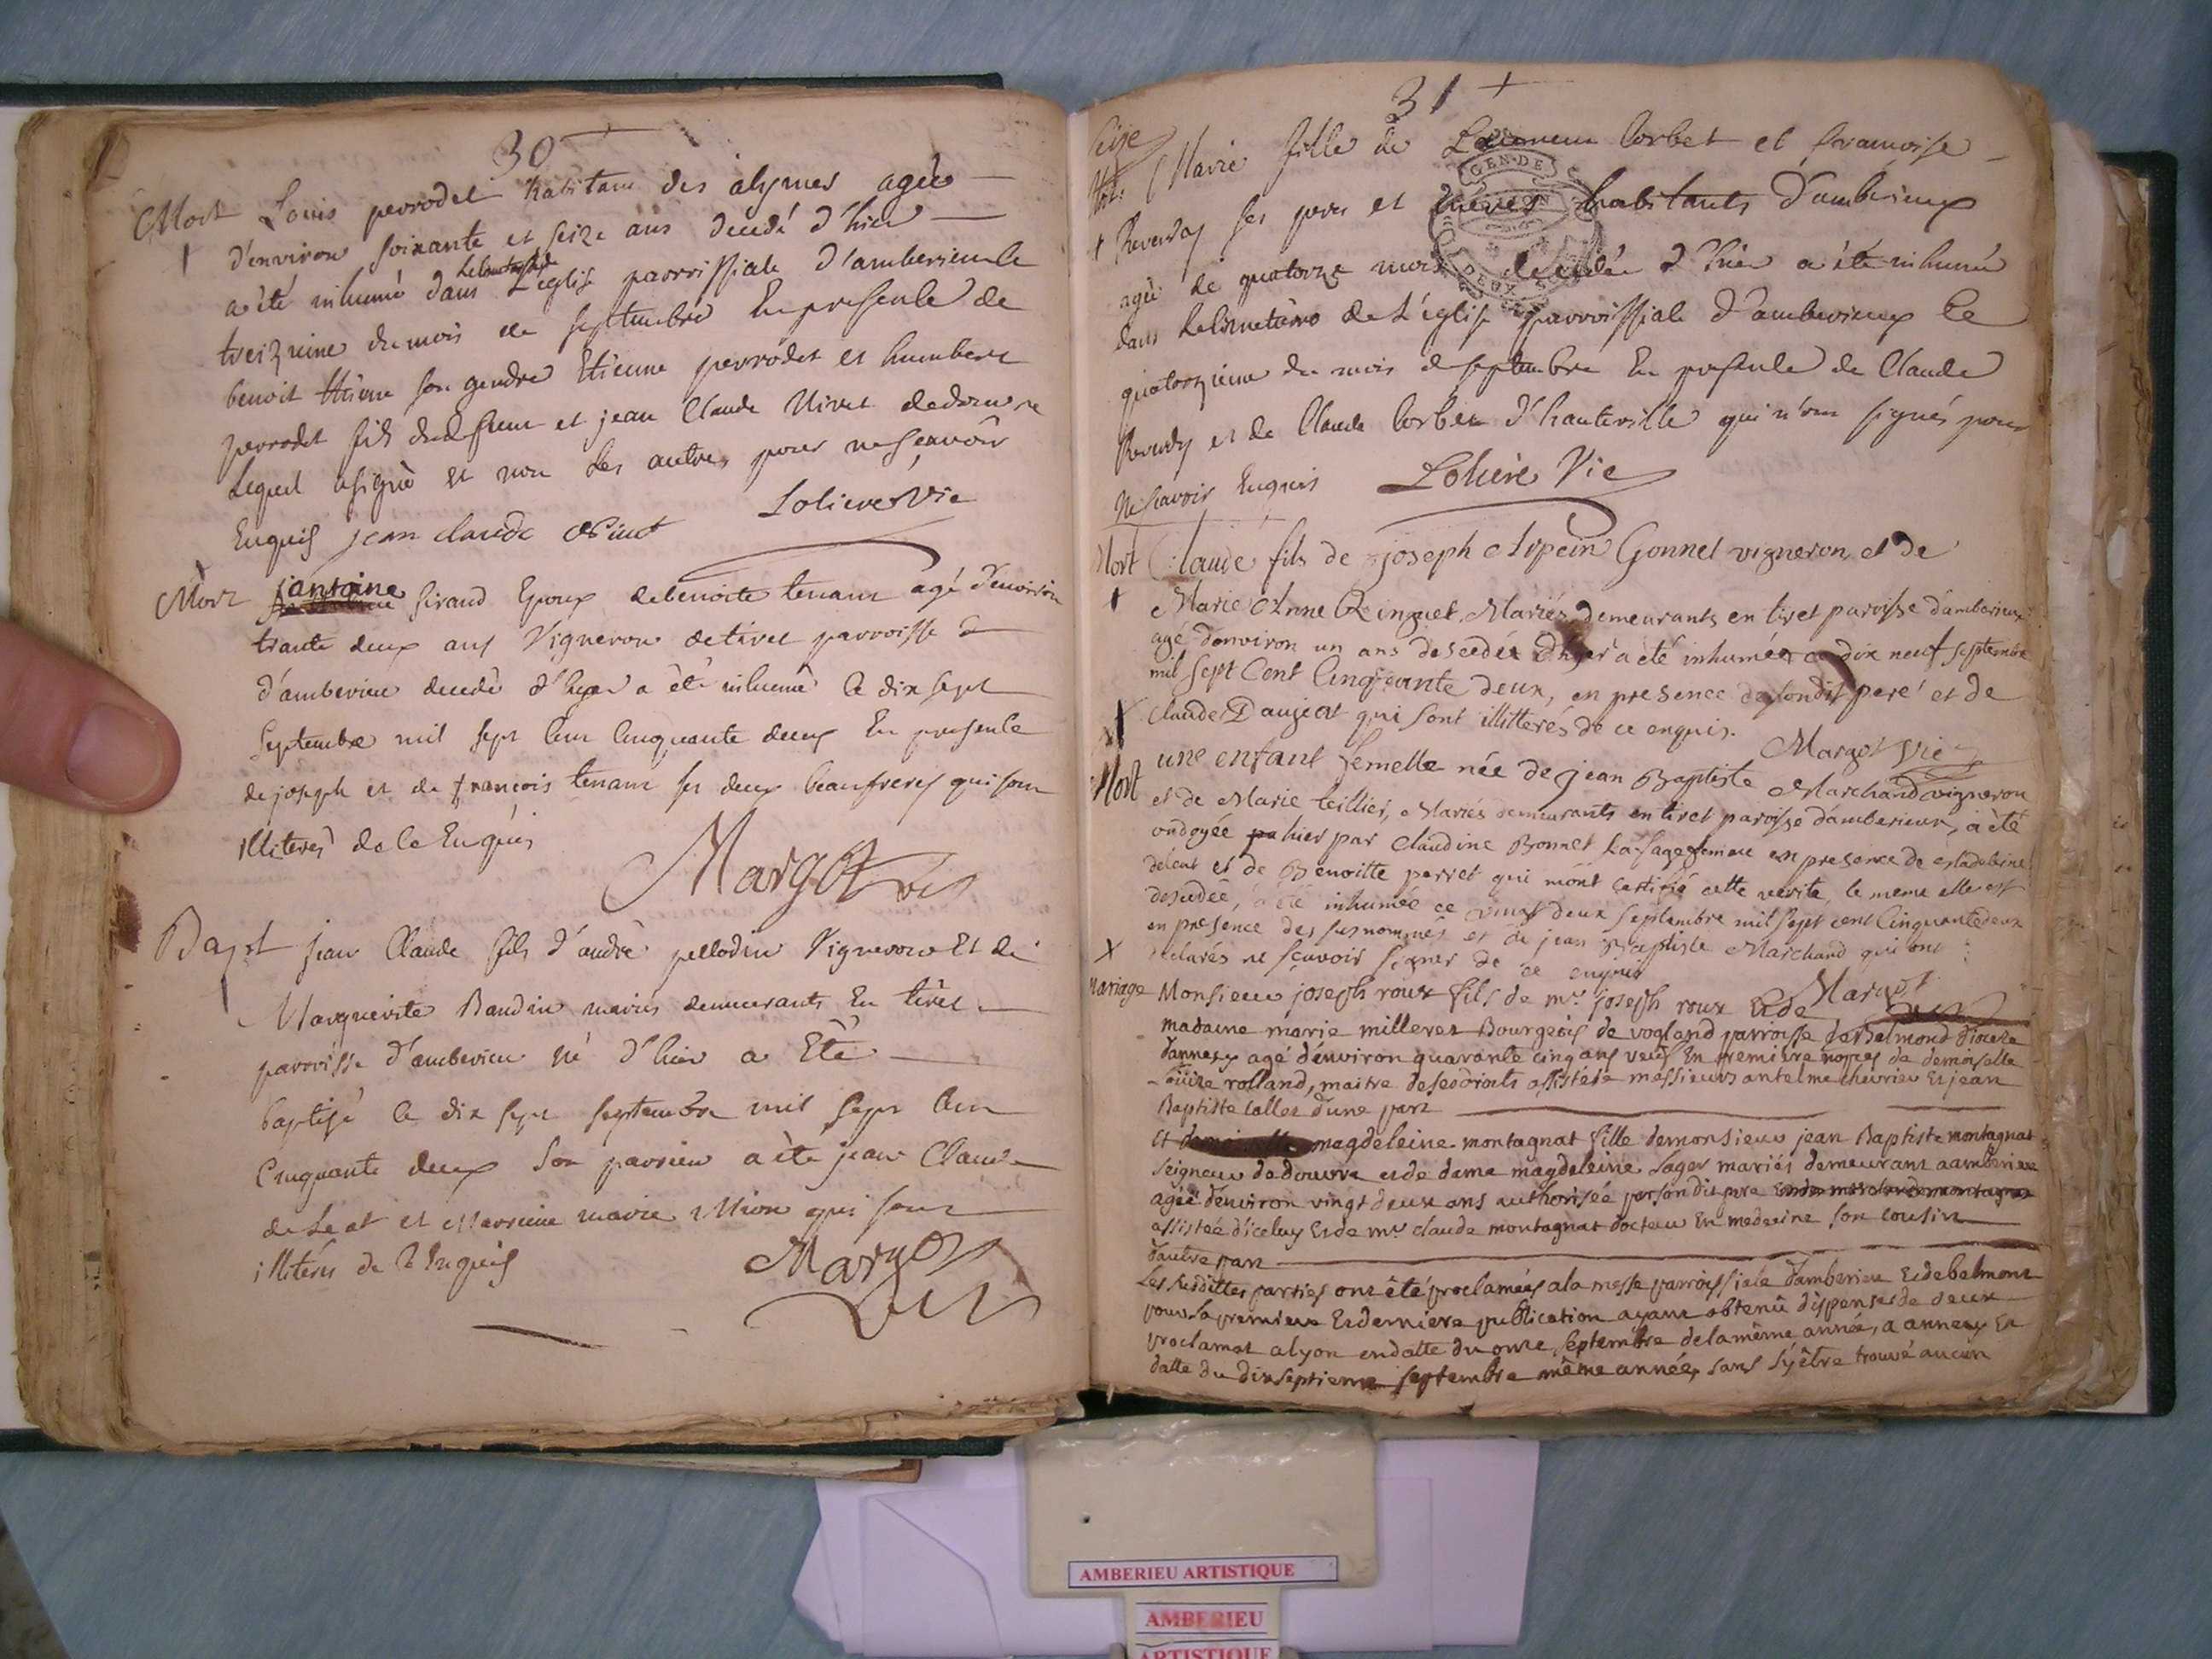 30
Mort Louis perrodet habitant des alymes agée
d'environ soixante et seize ans decedé d'hier
a été inhumé dans Le cimetiere de L'eglise parroissiale d'amberieu le
treizieme du mois de septembre En presence de
benoit son gendre Etienne perrodet et humbert
perrodet fils du defunt et jean Claude Nivet dedouvre
Lequel a signé et non Les autres pour ne sçavoir
Enquis jean claude
Loliere Vic
Mort antoine Giraud Epoux de benoite tenant agé d'environ
trante deux ans Vigneron de tiret parroisse
d'amberieu decedé d'hyer a été inhumé le dix sept
septembre mil sept cent cinquante deux En presence
de joseph et de françois tenant ses deux beaufreres qui sont
illiterés de ce Enquis
Margot vic
Bapt jean Claude fils d'andré pellodin Vigneron Et de
Marguerite Baudin mariés demeurants En tiret
parroisse d'amberieu né d'hier a Eté
baptisé le dix sept septembre mil sept cent
Cinquante deux Son parrien a été jean Claude
de Leat et Marreine marie Mion qui sont
illiterés de ce Enquis
Margot
vic
31 +
Mort Marie fille de Corbet et francoise
Reverdy ses peres et meres habitants d'amberieux
agée de quatorze mois decedée d'hier a été inhumée
dans Le Cimetiere de L'église parroissiale d'amberieux le
quatorzieme du mois de septembre En presence de Claude
Reverdy et de Claude Corbet d'hauteville qui n'ont signés pour
Ne sçavoir Enquis Loliere Vic
Mort Claude fils de joseph Arpein Gonnet vigneron et de
Marie Anne Ringuet Mariés demeurants en tiret paroisse d'amberieux
agé d'environ un ans decedée d'hyer a été inhumée ce dix neuf septembre
mil sept Cent Cinquante deux, en presence de sondit pere et de
Claude Daujeat qui sont illitterés de ce enquis.
Margot vic
Mort une enfant femelle née de jean Baptiste Marchand vigneron
et de Marie teillier, Mariés demeurants en tiret paroisse d'amberieux, a été
ondoyée hier par Claudine Bonnet La sage femme en presence de Madeleine
delent et de Benoitte perret qui mont certifié cette verité, le meme elle est
decedée, a été inhumée ce vingt deux septembre mil sept cent Cinquante deux
en presence des susnommés et de jean Baptiste Marchand qui ont
declarés ne sçavoir signer de ce enquis
Margot
mariage Monsieur joseph roux fils de mr joseph roux Et de
madame marie milleret Bourgeois de vogland parroisse de Belmond diocese
d'annesy agé d'environ quarante cinq ans veuf En premiere nopces de demoiselle
Louize rolland, maitre de ses droits assisté de messieurs antelme chevrier Et jean
Baptiste Callet d'une part
Et magdeleine montagnat fille de monsieur jean Baptiste montagnat
seigneur de douvre et de dame magdeleine Sager mariés demeurant a amberieu
agée d'environ vingt deux ans authorisée par son dit pere
assistée d'iceluy Et de mr claude montagnat docteur En medecine son cousin
d'autre part
Les susdittes parties ont été proclamées a la messe parroissiale d'amberieu Et de belmont
pour la premiere Et derniere publication ayant obtenû dispense de deux
proclamat a lyon en datte du onze septembre de la même année, a annesy En
datte du dixseptieme septembre même année, sans s'yêtre trouvé aucun
AMBERIEU ARTISTIQUE
AMBERIEU
ARTISTIQUE